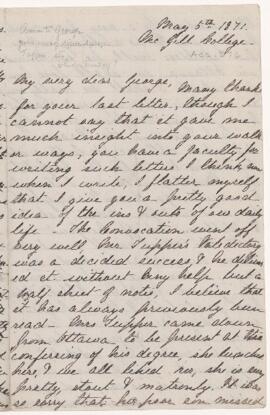 May 5th 1871.
Mc Gill College.
Anna to George
My very dear George, Many thanks
for your last letter, though I
cannot say that it gave me
much insight into your walks
or ways, you have a faculty for
writing such letters I think, now
when I write, I flatter myself
that I give you a pretty good
idea of the ins & outs of our daily
life. The Convocation went off
very well Mr Tupper's Valedictory
was a decided success, & he deliver
ed it without any help but a
half sheet of notes, I believe that
it has always previously been
read - Mrs Tupper came down
from Ottawa to be present at the
conferring of his degree, she lunched
here, & we all liked her, she is very
pretty, stout & matronly. It was
so sorry that he poor missed